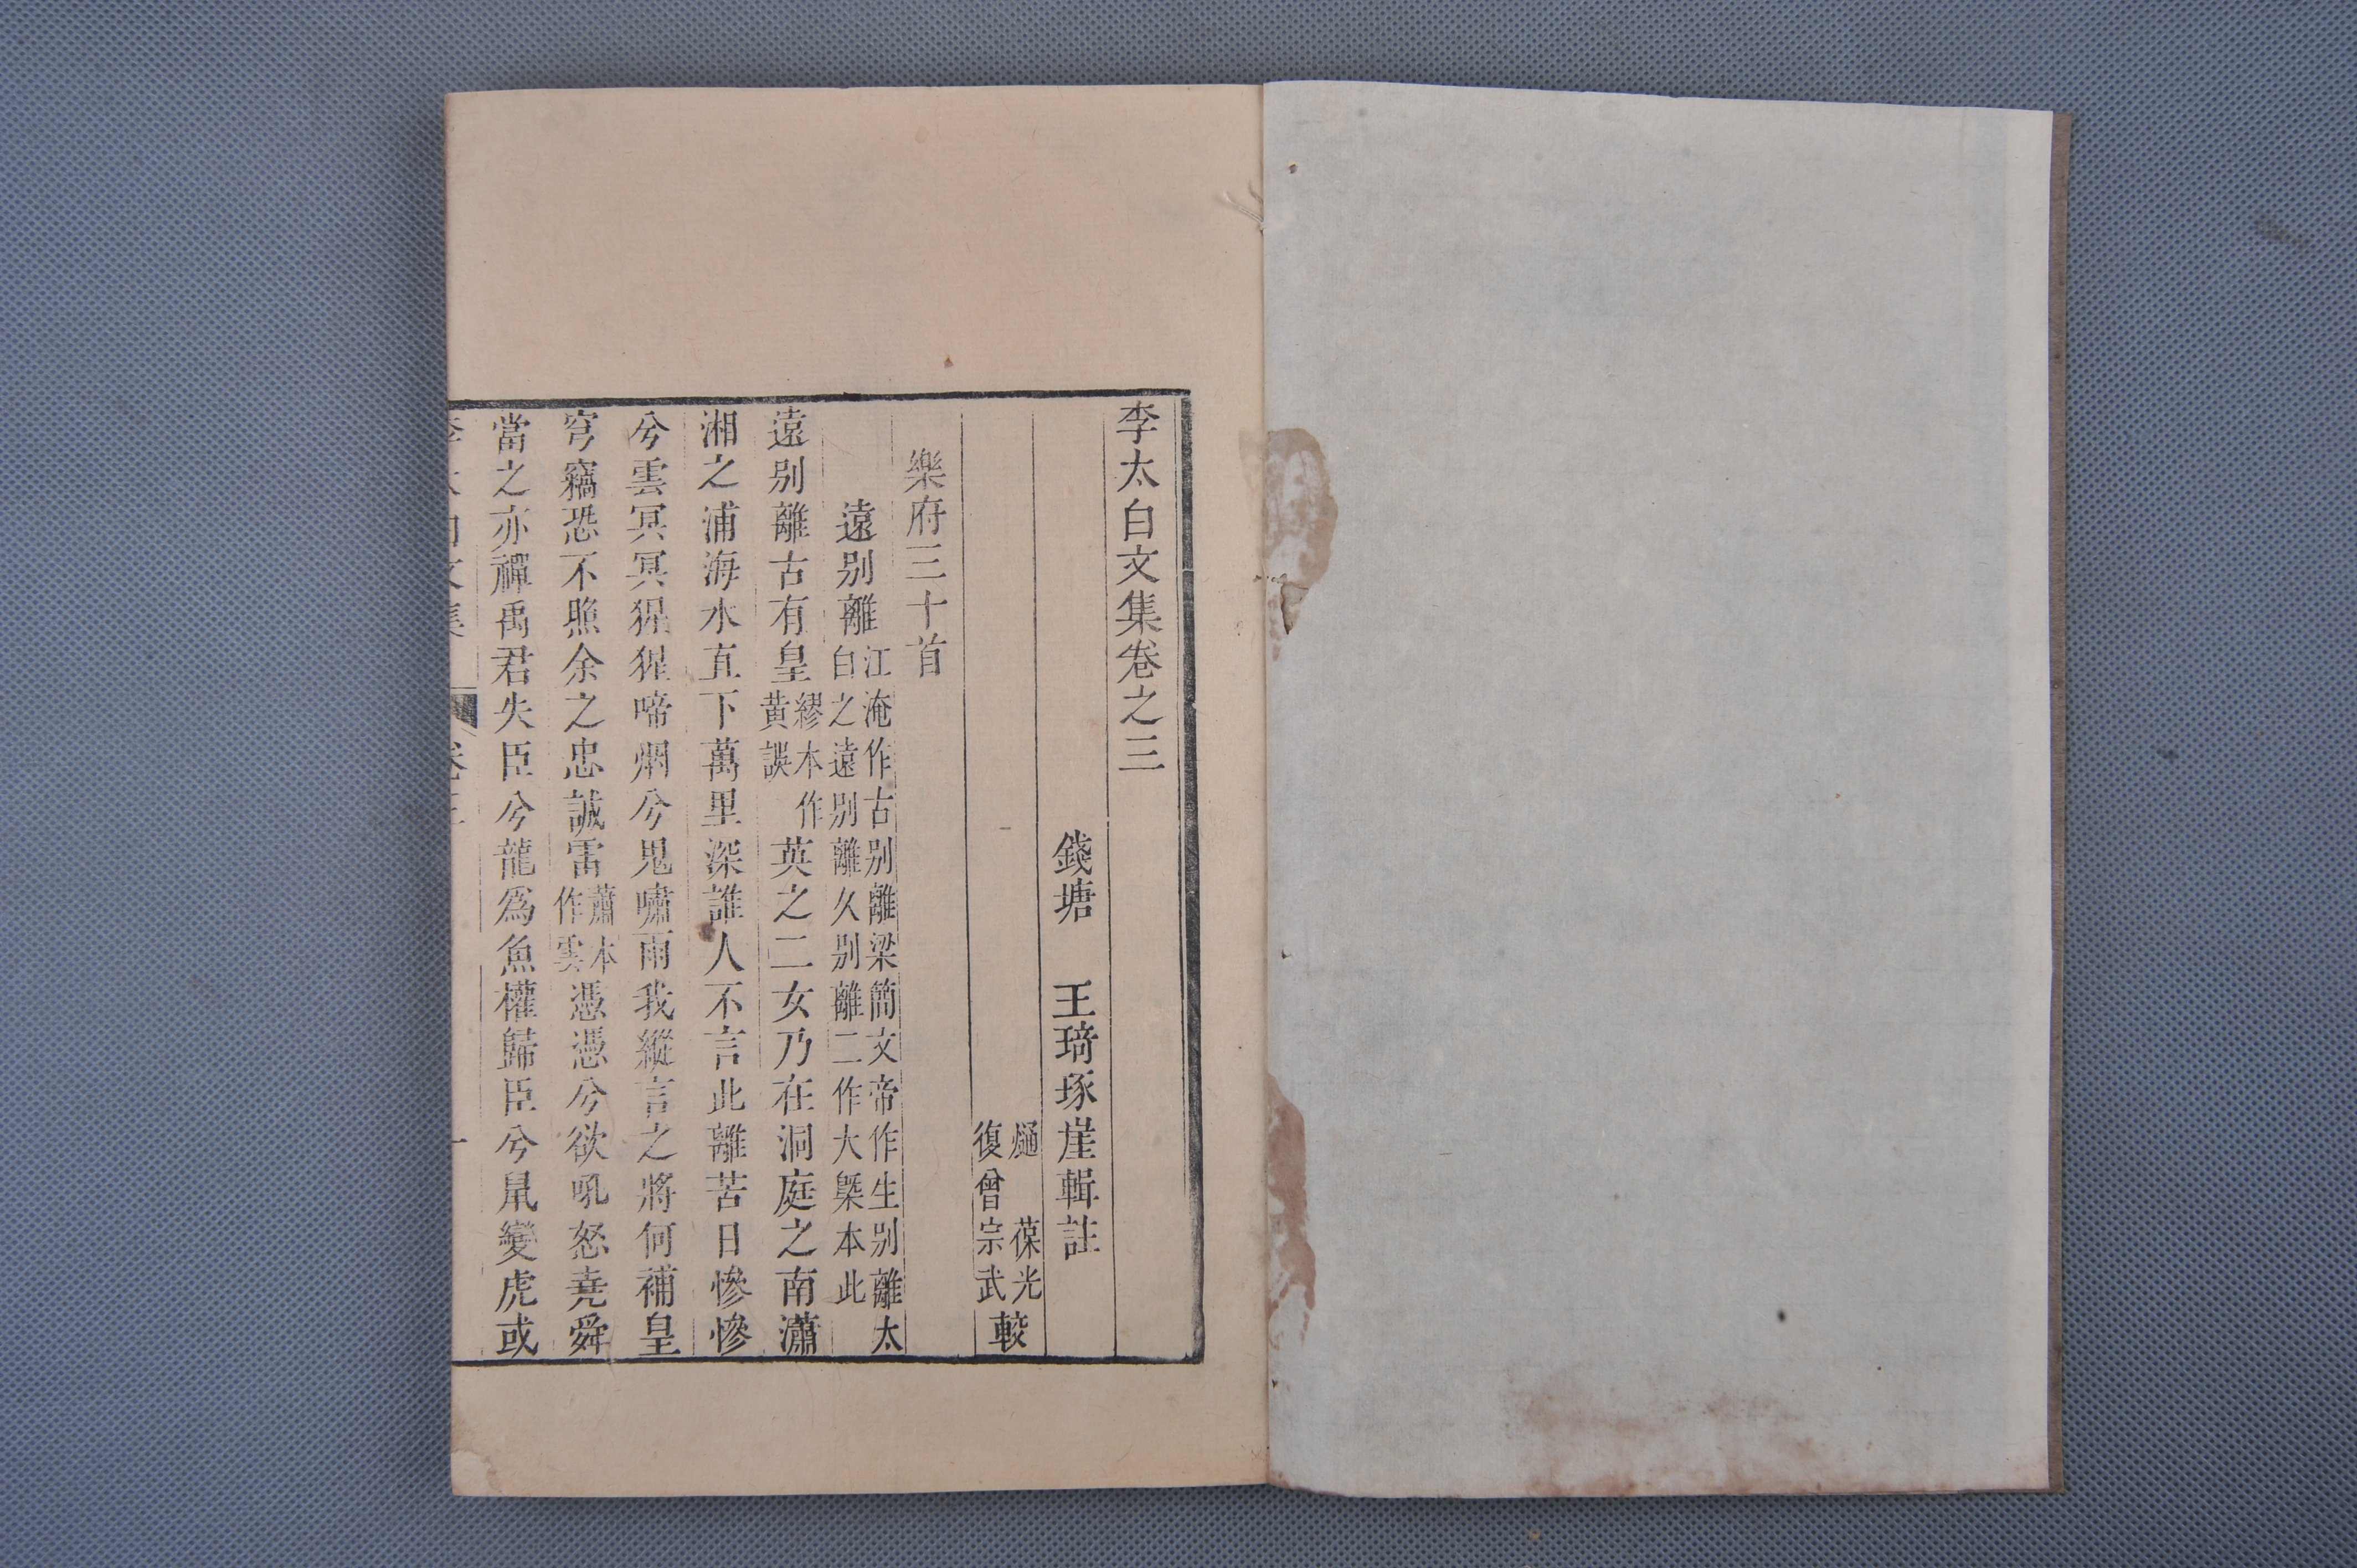 李太白文集卷之三
錢塘　王琦琢崖輯註
葆光
復曾宗武
較
樂府三十首
遠别離
江淹作古别離梁簡文帝作生别離太
白之遠别離久别離二作大槩本此
遠别離古有皇
繆本作
黄誤
英之二女乃在洞庭之南瀟
湘之浦海水直下萬里深誰人不言此離苦日慘慘
兮雲冥冥猩猩啼烟兮鬼嘯雨我縱言之將何補皇
穹竊恐不照余之忠誠雷
蕭本
作雲
憑憑兮欲吼怒堯舜
當之亦禪禹君失臣兮龍爲魚權歸臣兮鼠變虎或
李太白文集　卷三　一